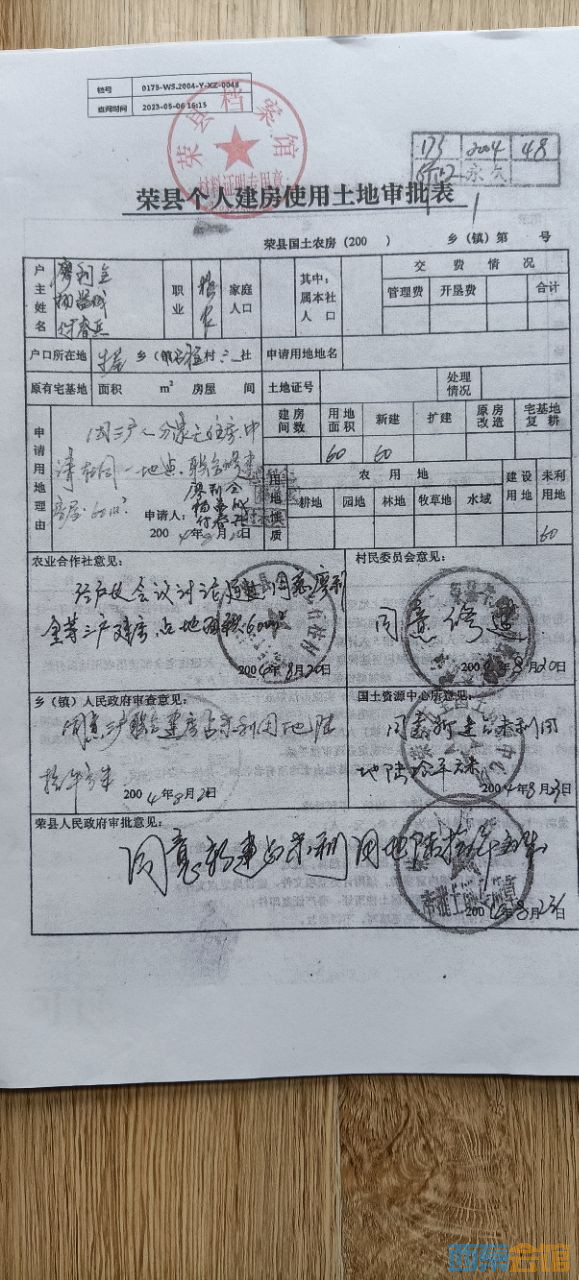 档号 0175-WS.2004-Y-XZ-0048
查阅时间 2023-05-06 16:15
荣县档案馆
材料证明专用章
173 2004 48
永久
荣县个人建房使用土地审批表
荣县国土农房(200 ) 乡(镇)第 号
户主姓名 廖利全
职业 家庭人口 其中:属本社人口
交费情况
管理费 开垦费 合计
户口所在地 乡(镇) 村 社 申请用地地名
原有宅基地 面积 m² 房屋 间 土地证号 处理情况
申请用地理由
因三户人分家无住房,申
请在同一地点,联合修建
房屋.60m².
申请人:廖利全
2004年8月20日
建房间数 用地面积 新建 扩建 原房改造 宅基地复耕
60 60
用地性质
农用地 建设用地 未利用地
耕地 园地 林地 牧草地 水域
60
农业合作社意见:
经户主会议讨论通过,同意廖利
全等三户建房占地面积60m²
2004年8月20日
村民委员会意见:
同意修建.
2004年8月20日
乡(镇)人民政府审查意见:
同意三户联合建房占未利用地陆
拾平方米
2004年8月2 日
国土资源中心房意见:
同意新建占未利用
地陆拾平方米
2004年8月23日
荣县人民政府审批意见:
同意新建占未利用地陆拾平方米.
2004年8月23日